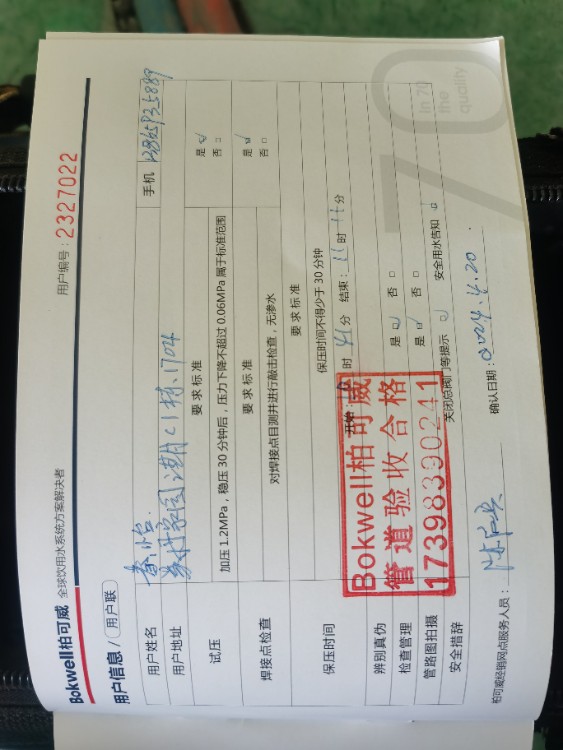 Bokwell柏可威 全球饮用水系统方案解决者
用户编号：2327022
用户信息/（用户联）
用户姓名 秦怡 手机
用户地址 21栋1704
试压 要求标准 是 ☑ 否 □
加压1.2MPa，稳压30分钟后，压力下降不超过0.06MPa属于标准范围
焊接点检查 要求标准 是 ☑ 否 □
对焊接点目测并进行敲击检查，无渗水
保压时间 要求标准
保压时间不得少于30分钟
开始： 时 41分 结束：11时11分
辨别真伪 是 ☑ 否 □
检查管理 是 ☑ 否 □
管路图拍摄
安全措辞 关闭总阀门等提示 ☑ 安全用水告知 ☑
Bokwell柏可威
管道验收合格
17398390241
柏可威经销网点服务人员：
确认日期：2024.4.20.
70
In 70
the
quality